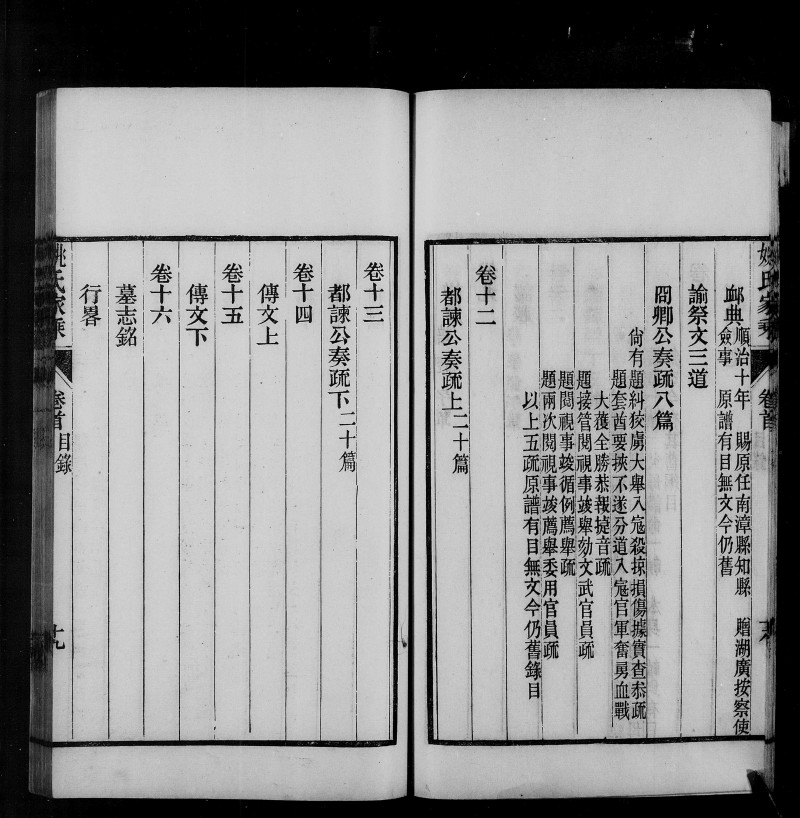 姚氏家乘
卷首
卹典順治十年 賜原任南漳縣知縣 贈湖廣按察使
僉事 原譜有目無文今仍舊
諭祭文三道
冏卿公奏疏八篇
尚有題糾狡虜大舉入寇殺掠損傷據實查叅疏
題套酋要挾不遂分道入寇官軍奮勇血戰
大獲全勝恭報捷音疏
題接管閱視事竣舉劾文武官員疏
題閱視事竣循例薦舉疏
題兩次閱視事竣薦舉委用官員疏
以上五疏原譜有目無文今仍舊錄目
卷十二
都諫公奏疏上二十篇
卷十三
都諫公奏疏下二十篇
卷十四
傳文上
卷十五
傳文下
卷十六
墓志銘
行畧
姚氏家乘
卷首 目錄
十九